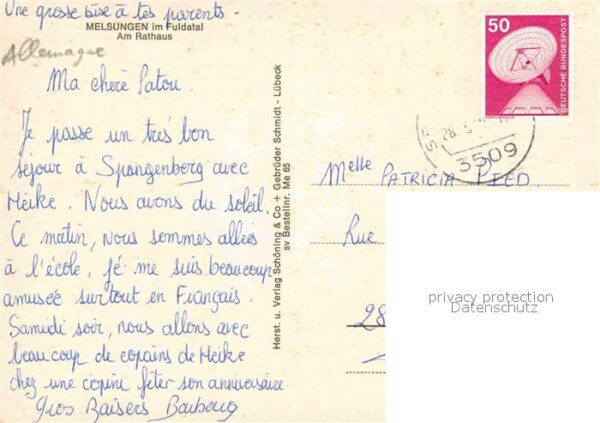 Une grosse bise à tes parents -
MELSUNGEN im Fuldatal
Am Rathaus
Allemagne
Ma chère Patou.
Je passe un très bon
séjour à Spangenberg avec
Heike. Nous avons du soleil.
Ce matin, nous sommes allées
à l'école, jé me suis beaucoup
amusée surtout en Français.
Samedi soir, nous allons avec
beaucoup de copains de Heike
chez une copine fêter son anniversaire
Gros Baisers
Herst. u. Verlag Schöning & Co + Gebrüder Schmidt - Lübeck
sv Bestellnr. Me 65
50
DEUTSCHE BUNDESPOST
28.
3509
Melle PATRICIA
Rue
28
privacy protection
Datenschutz